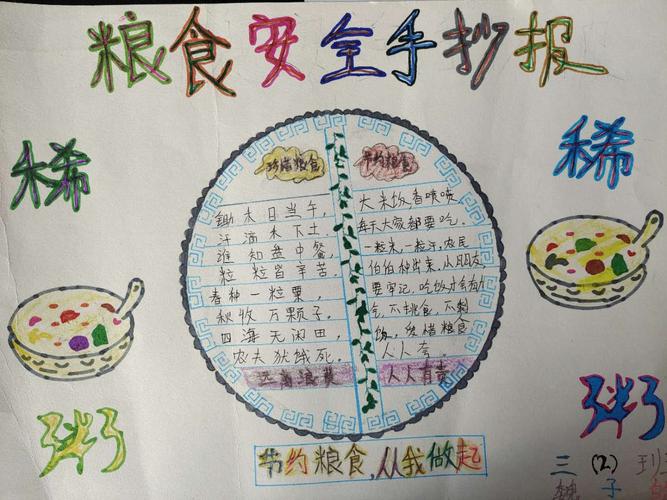 粮食安全手抄报
稀
稀
珍惜粮食
节约粮食
锄木日当午,
汗滴木下土。
谁知盘中餐,
粒粒皆辛苦。
春种一粒粟,
秋收万颗子。
四海无闲田,
农夫犹饿死。
远离浪费
大米饭香喷喷,
每天大家都要吃。
一粒米,一粒汗,农民
伯伯种出来,朋友
要牢记,吃饭
气,不挑食,不剩
饭,惜粮食
人人夸。
人人有责
粥
粥
节约粮食,从我做起
三(2)班
子